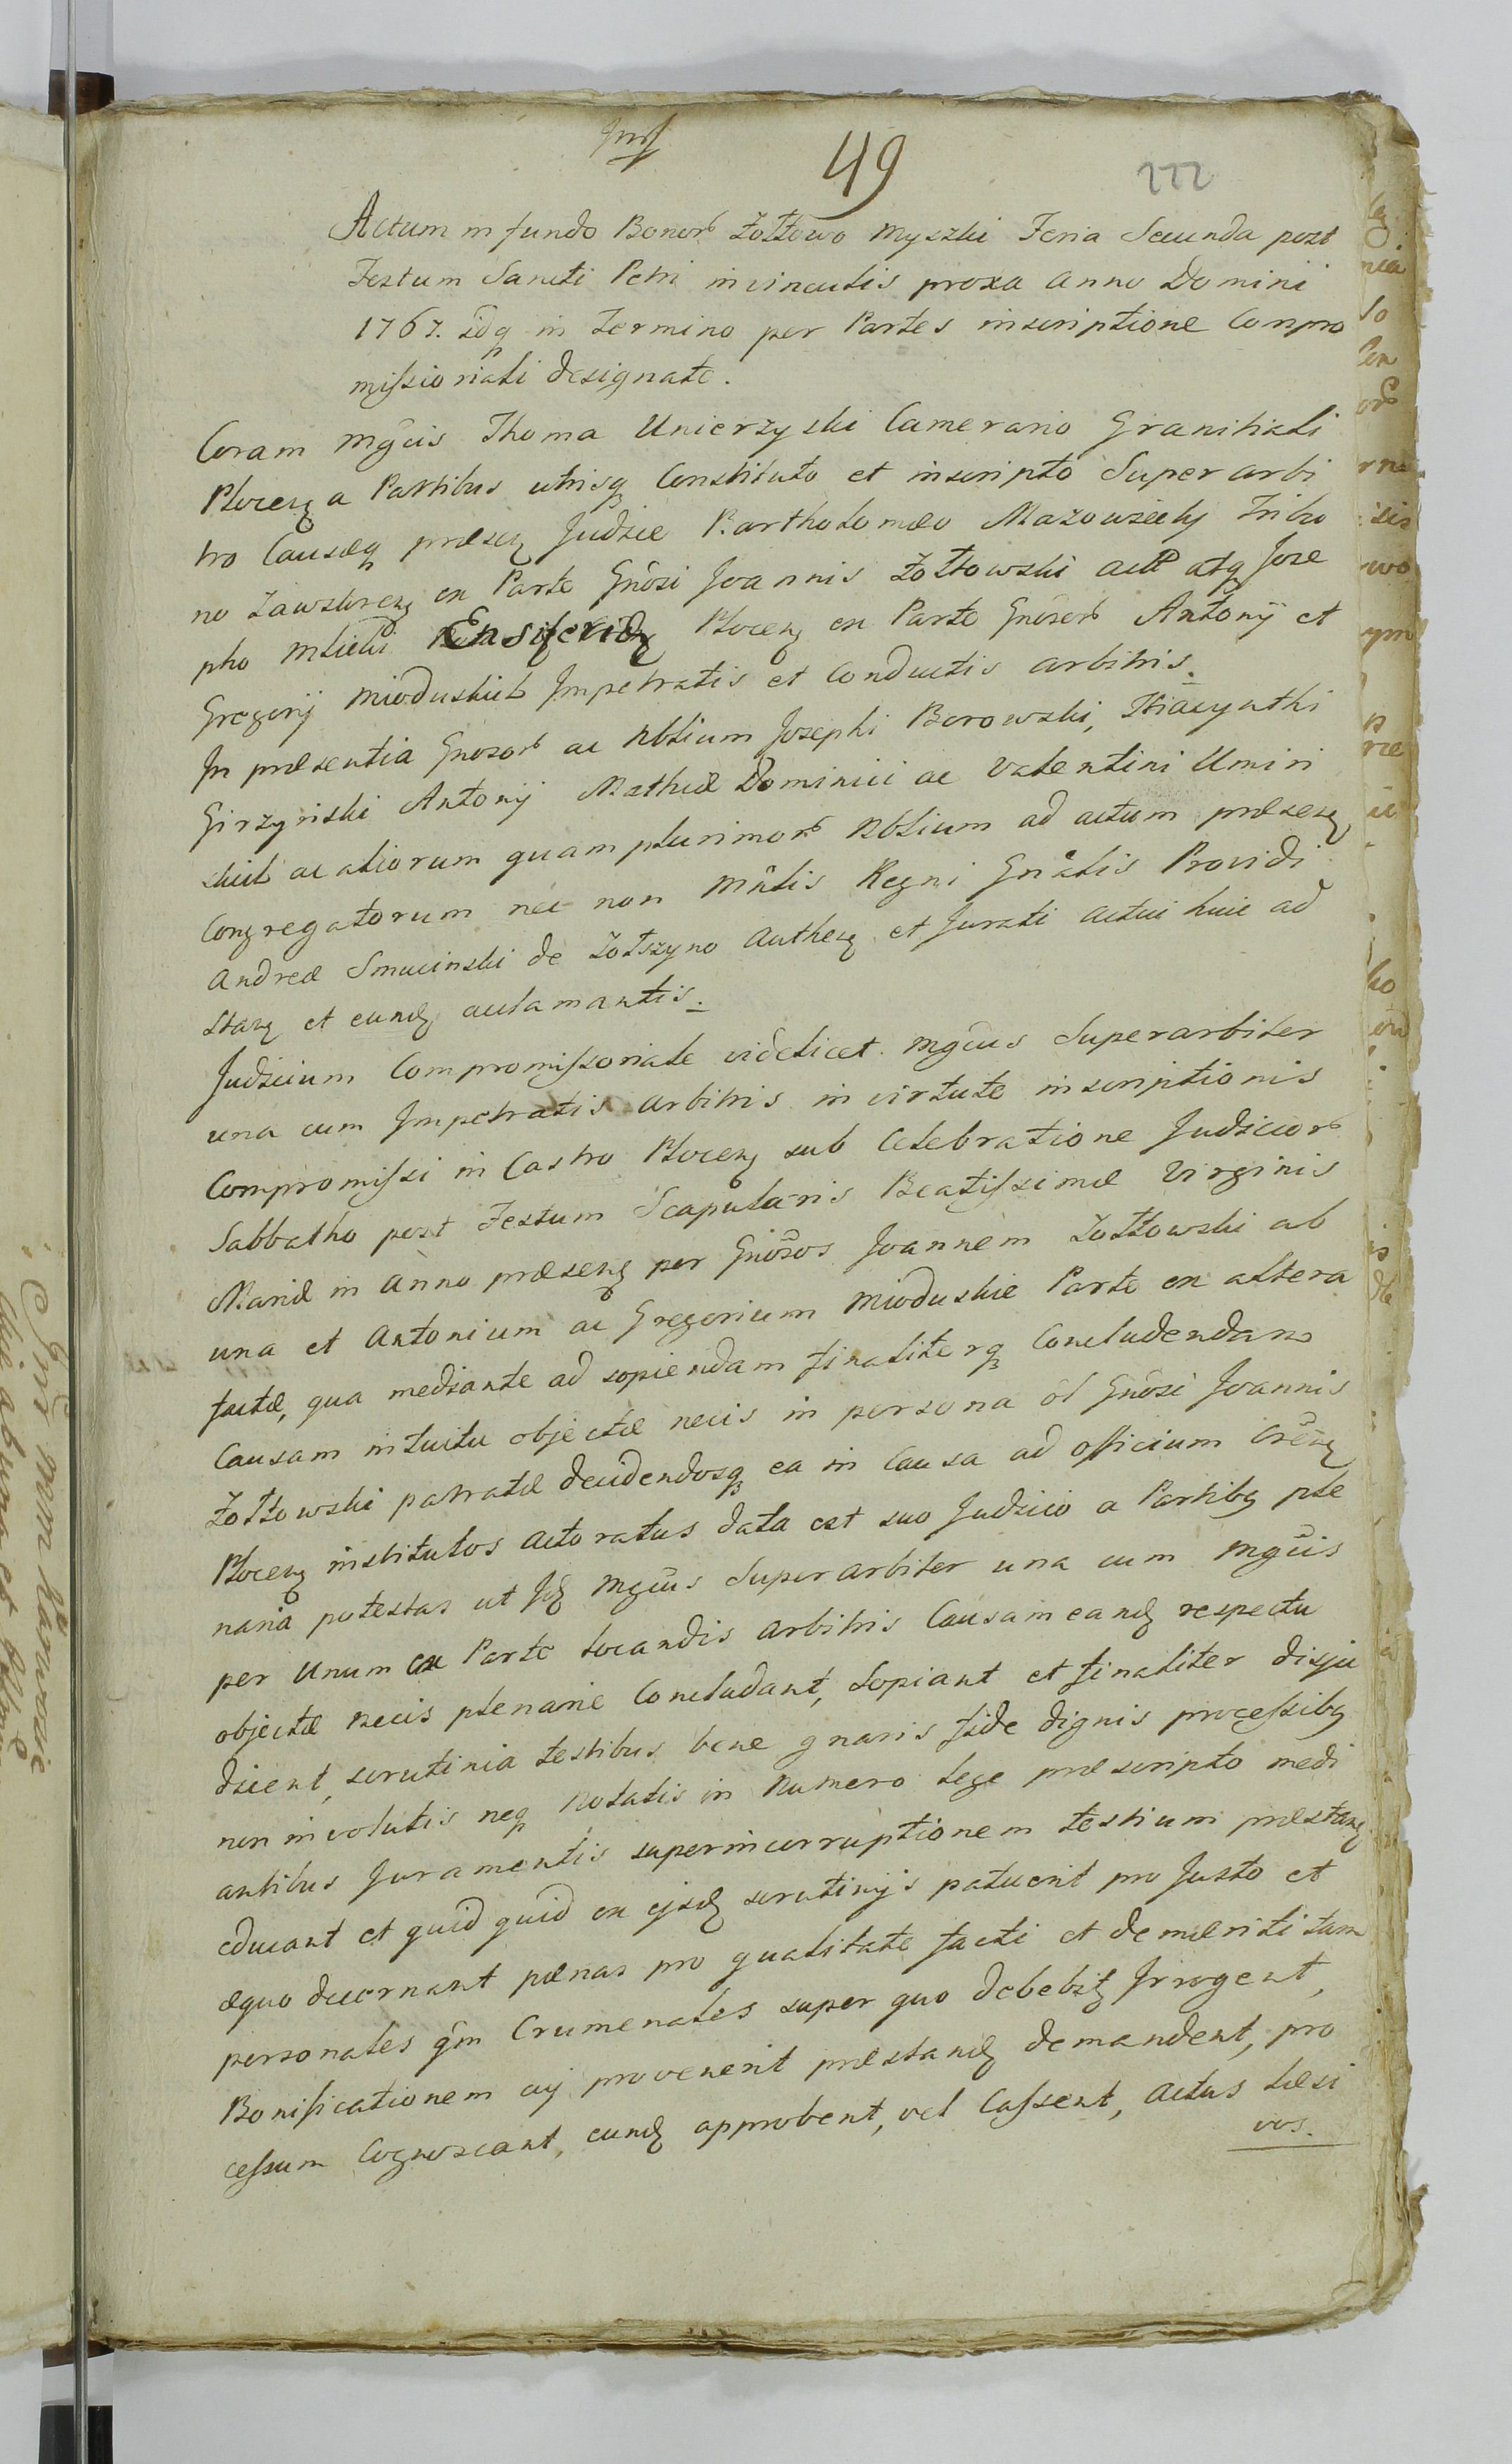 49
222
Actum in fundo Bonor Żołtowo Myszki Feria Secunda post
Festum Sancti Petri in vinculis proxa Anno Domini
1767. idq in Termino per Partes inscriptione Compro
missioriali designato.
Coram Mgcis Thoma Unierzyski Camerario Granitiali
Plocen a Partibus utrisq Constituto et inscripto Superarbi
tro Causæq præsen Judice Bartholomæo Mazowiecky Tribu
no Zawskren ex Parte Gnosi Joannis Żołtowski act atq Jose
pho Mlicki Ensiferid Plocen ex Parte Gnosor Antonij et
Gregorij Mioduskich Impetratis et Conductis arbitris.
In præsentia Gnosor ac Nbilium Josephi Borowski, Hiacynthi
Girzyński Antonij Mathiæ Dominici ac Valentini Umin
skich ac aliorum quam plurimor Nbilium ad actum præsen
Congregatorum nec non Mnlis Regni Gnalis Providi
Andreæ Smucinski de Zołszyno Authen et Jurati actui huic ad
stan et eund aclamantis.
Judicium Compromissoriale videlicet Mgcus Superarbiter
una cum Impetratis arbitris in virtute inscriptionis
Compromissi in Castro Plocen sub Celebratione Judicior
Sabbatho post Festum Scapularis Beatissimæ Virginis
Mariæ in Anno præsen per Gnosos Joannem Żołtowski ab
una et Antonium ac Gregorium Mioduskie Parte ex altera
factæ, qua mediante ad sopiendam finaliterq Concludendam
Causam intuitu objectæ necis in persona ol Gnosi Joannis
Żołtowski patratæ decidendosq ea in Causa ad officium Cren
Plocen institutos actoratus data est suo Judicio a Partibq ple
naria potestas ut Jd Mgcus Superarbiter una cum Mgcis
per Unum ex Parte locandis arbitris Causam eand respectu
objectæ necis plenarie Concludant, Sopiant et finaliter diju
dicent, scrutinia testibus bene gnaris fide dignis processibq
non involutis neq notatis in Numero lege præscripto medi
antibus Juramentis super incorruptionem testium præstan
educant et quid quid ex ejsd scrutinijs patuerit pro Justo et
æquo decernant pænas pro qualitate facti et demæriti tam
personales qm Crumenales super quo debebit Irrogent,
Bonificationem cuj provenerit præstand demandent, pro
cessum Cognoscant, eund approbent, vel Cassent, Actus læsi
vos.